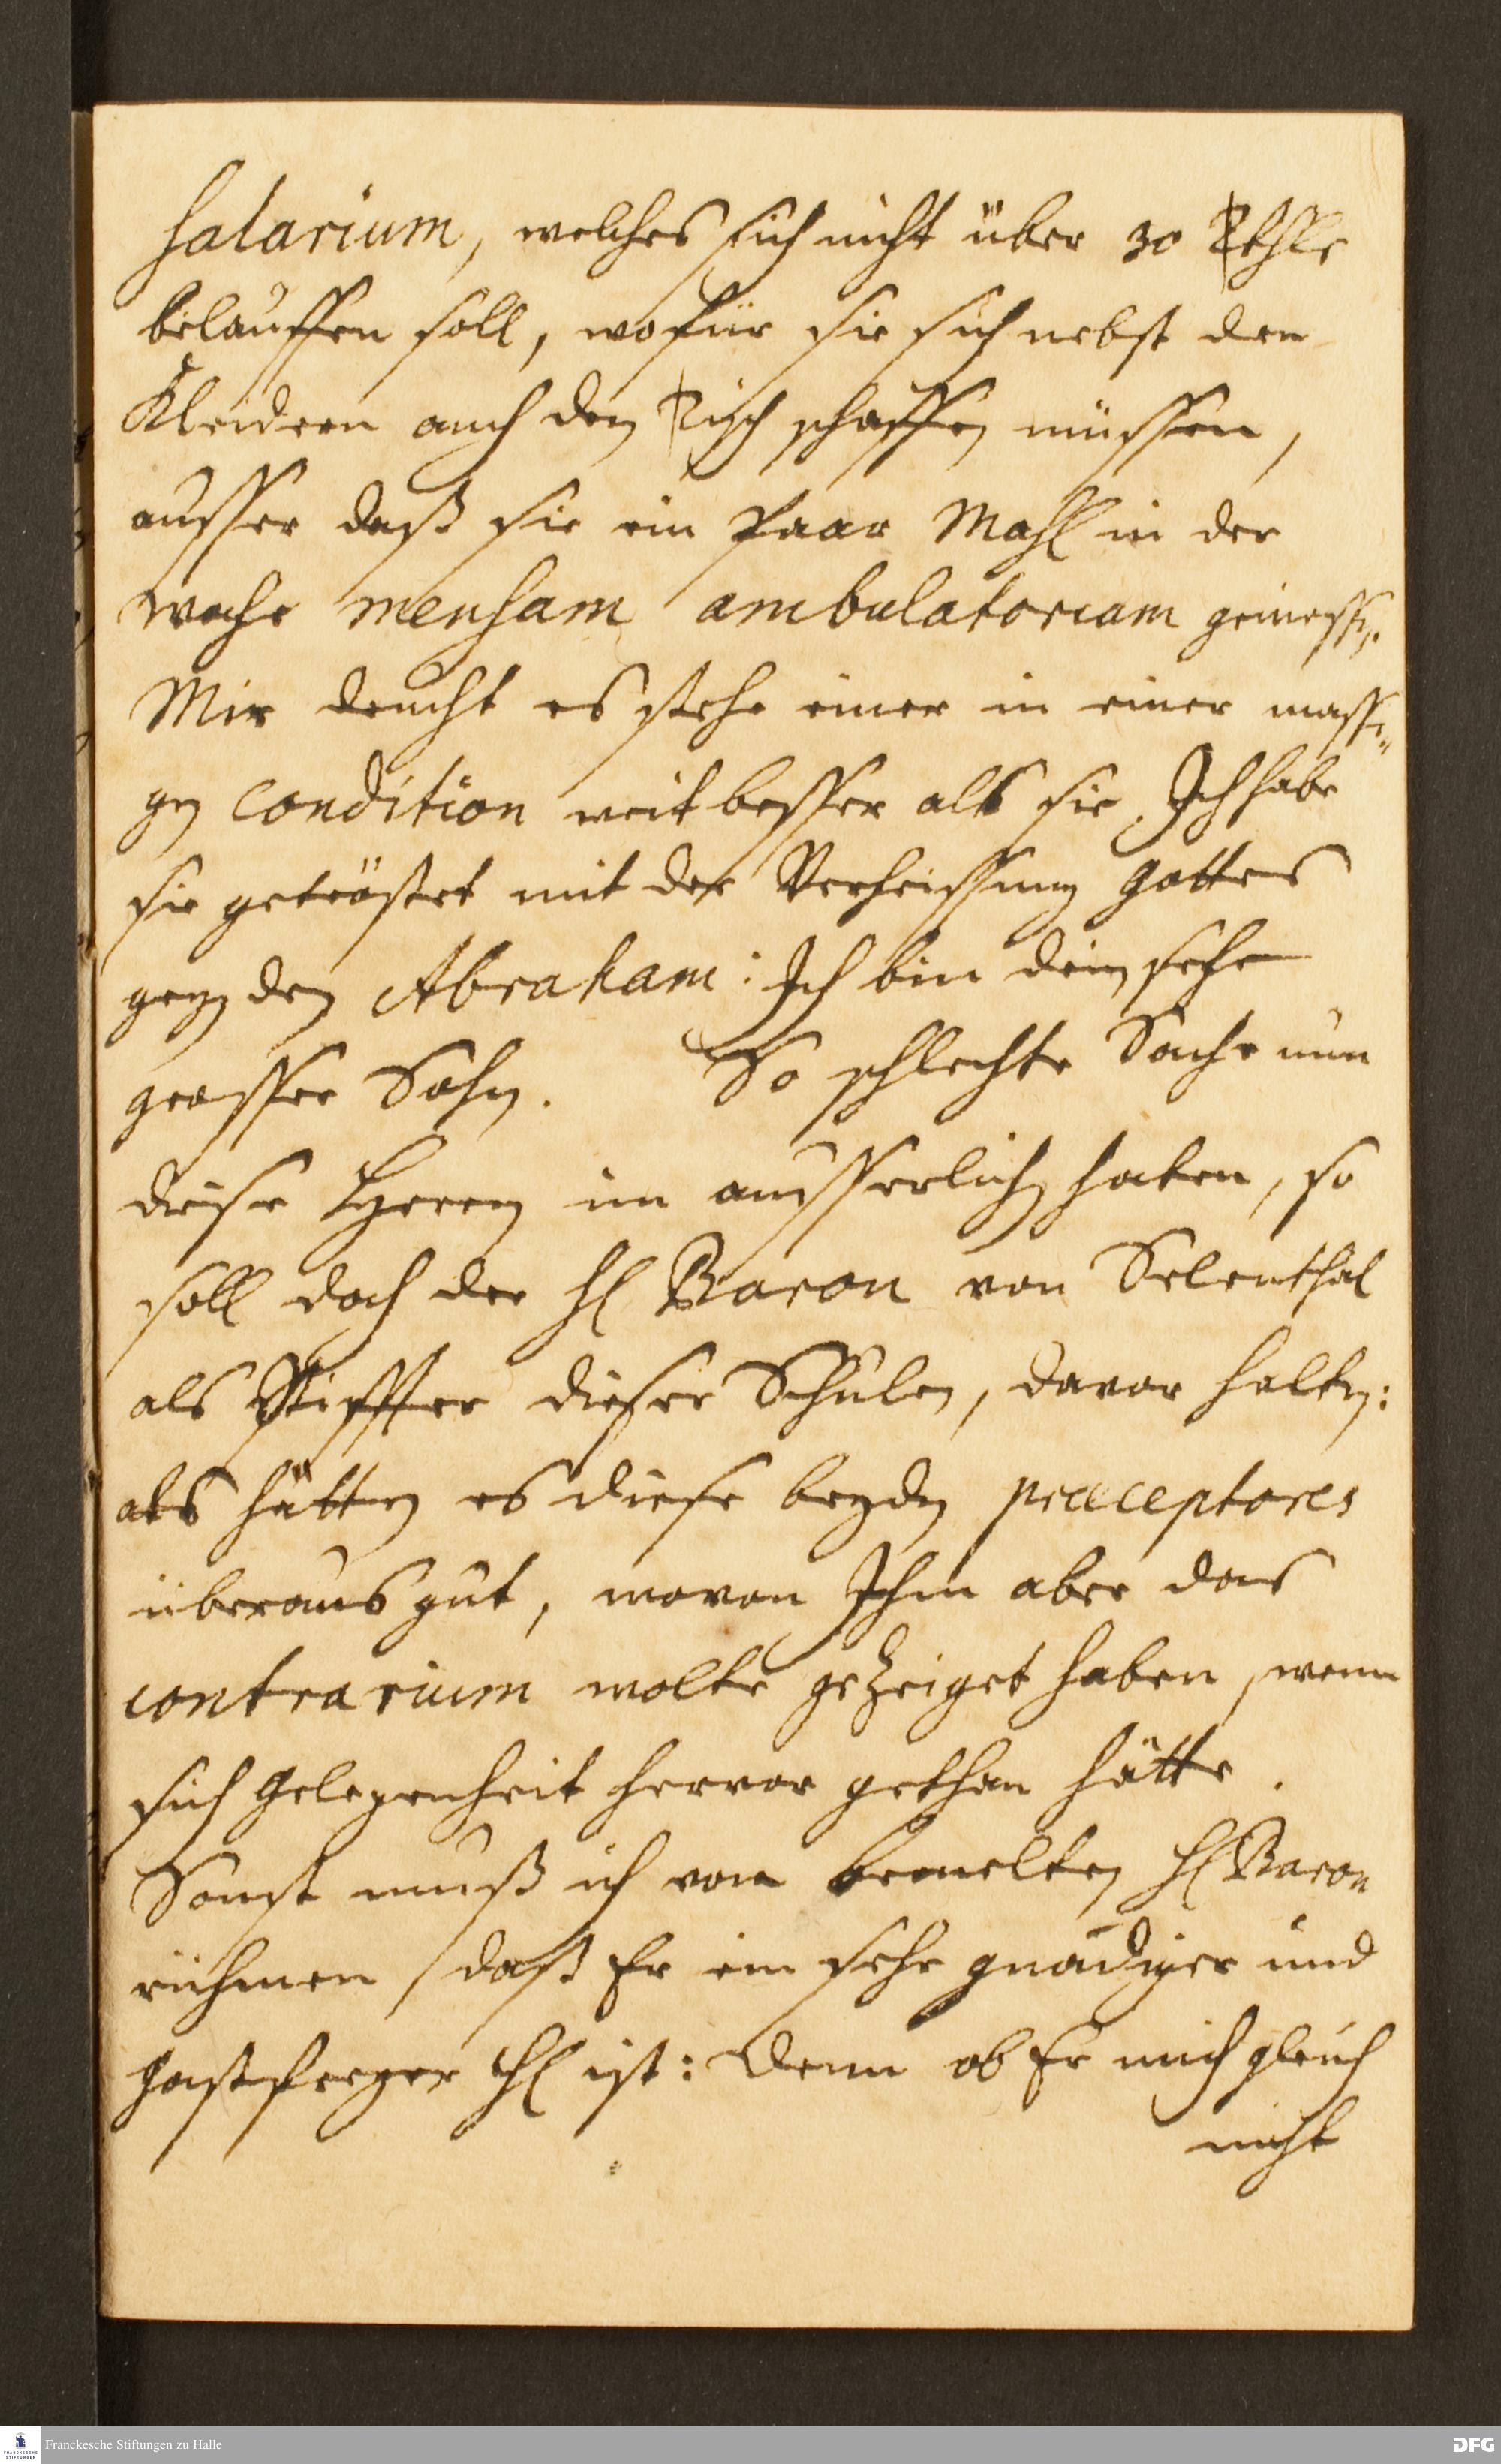 Salarium, welches sich nicht über 30 Rthlr
belauffen soll, wofür sie sich nebst den
Kleidern auch den Tisch schaffen müssen,
ausser daß sie ein paar Mahl in der
woche mensam ambulatoriam geniessen.
Mir deucht es stehe einer in einer mässi-
gen condition weit besser als sie. Ich habe
sie getröstet mit der Verheissung Gottes
gegen den Abraham: Ich bin dein sehr
grosser Lohn. So schlechte Sache nun
diese Herren im ausserlichen haben, so
soll doch der H. Baron von Selenthal
als Stiffter dieser Schulen, davor halten:
als hätten es diese beyden praeceptores
überaus gut, wovon Ihm aber das
contrarium wolte gezeiget haben, wenn
sich Gelegenheit hervor gethan hätte.
Sonst muß ich von bemelten H. Baron
rühmen, daß Er ein sehr gnädiger und
gastfreyer H. ist: Denn ob Er mich gleich
nicht
Franckesche Stiftungen zu Halle
DFG